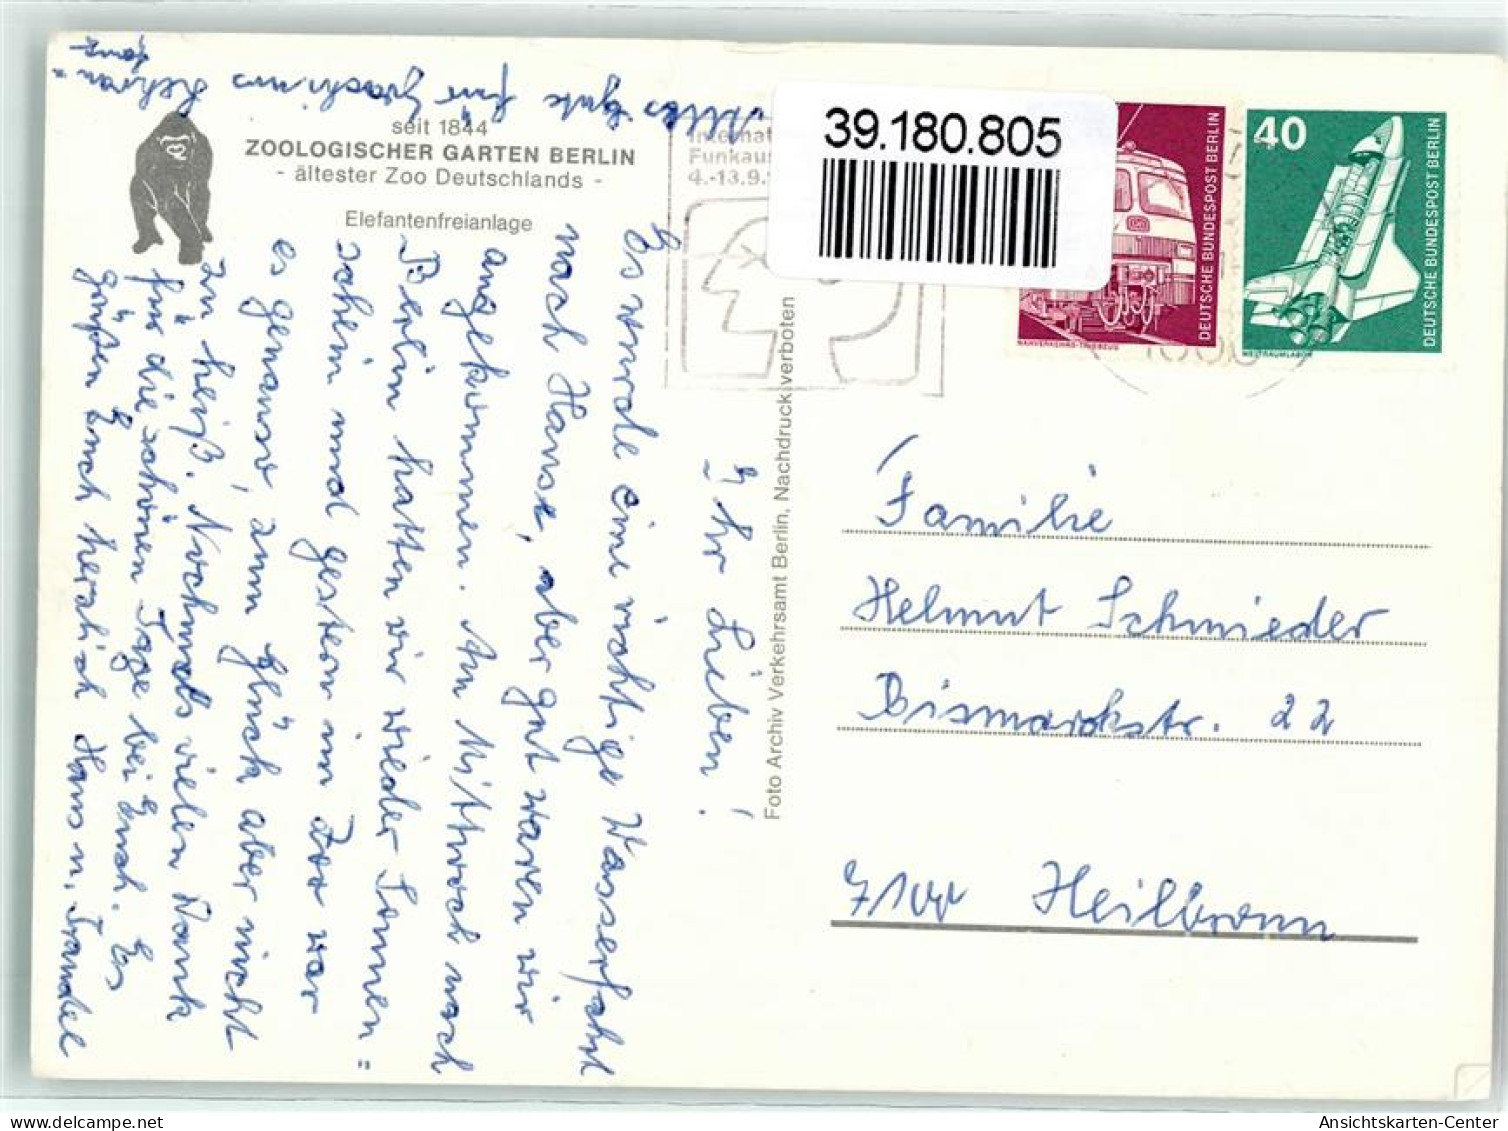 seit 1844
ZOOLOGISCHER GARTEN BERLIN
- ältester Zoo Deutschlands -
Elefantenfreianlage
Ihr Lieben!
Es wurde eine richtige Wasserfahrt
nach Hause, aber gut waren wir
angekommen. Am Mittwoch nach
Berlin hatten wir wieder Sonnen=
schein und gestern im Zoo war
es genauso, zum Glück aber nicht
zu heiß. Nochmals vielen Dank
für die schönen Tage bei Euch. Es
grüßen Euch herzlich Hans u. Traudel
Alles Gute für Joachims
Foto Archiv Verkehrsamt Berlin, Nachdruck verboten
Internat
Funkaus
4.-13.9.
39.180.805
DEUTSCHE BUNDESPOST BERLIN
NAHVERKEHRS-TRIEBZUG
40
DEUTSCHE BUNDESPOST BERLIN
WELTRAUMLABOR
Familie
Helmut Schmieder
Bismarckstr. 22
7100 Heilbronn
Ansichtskarten-Center